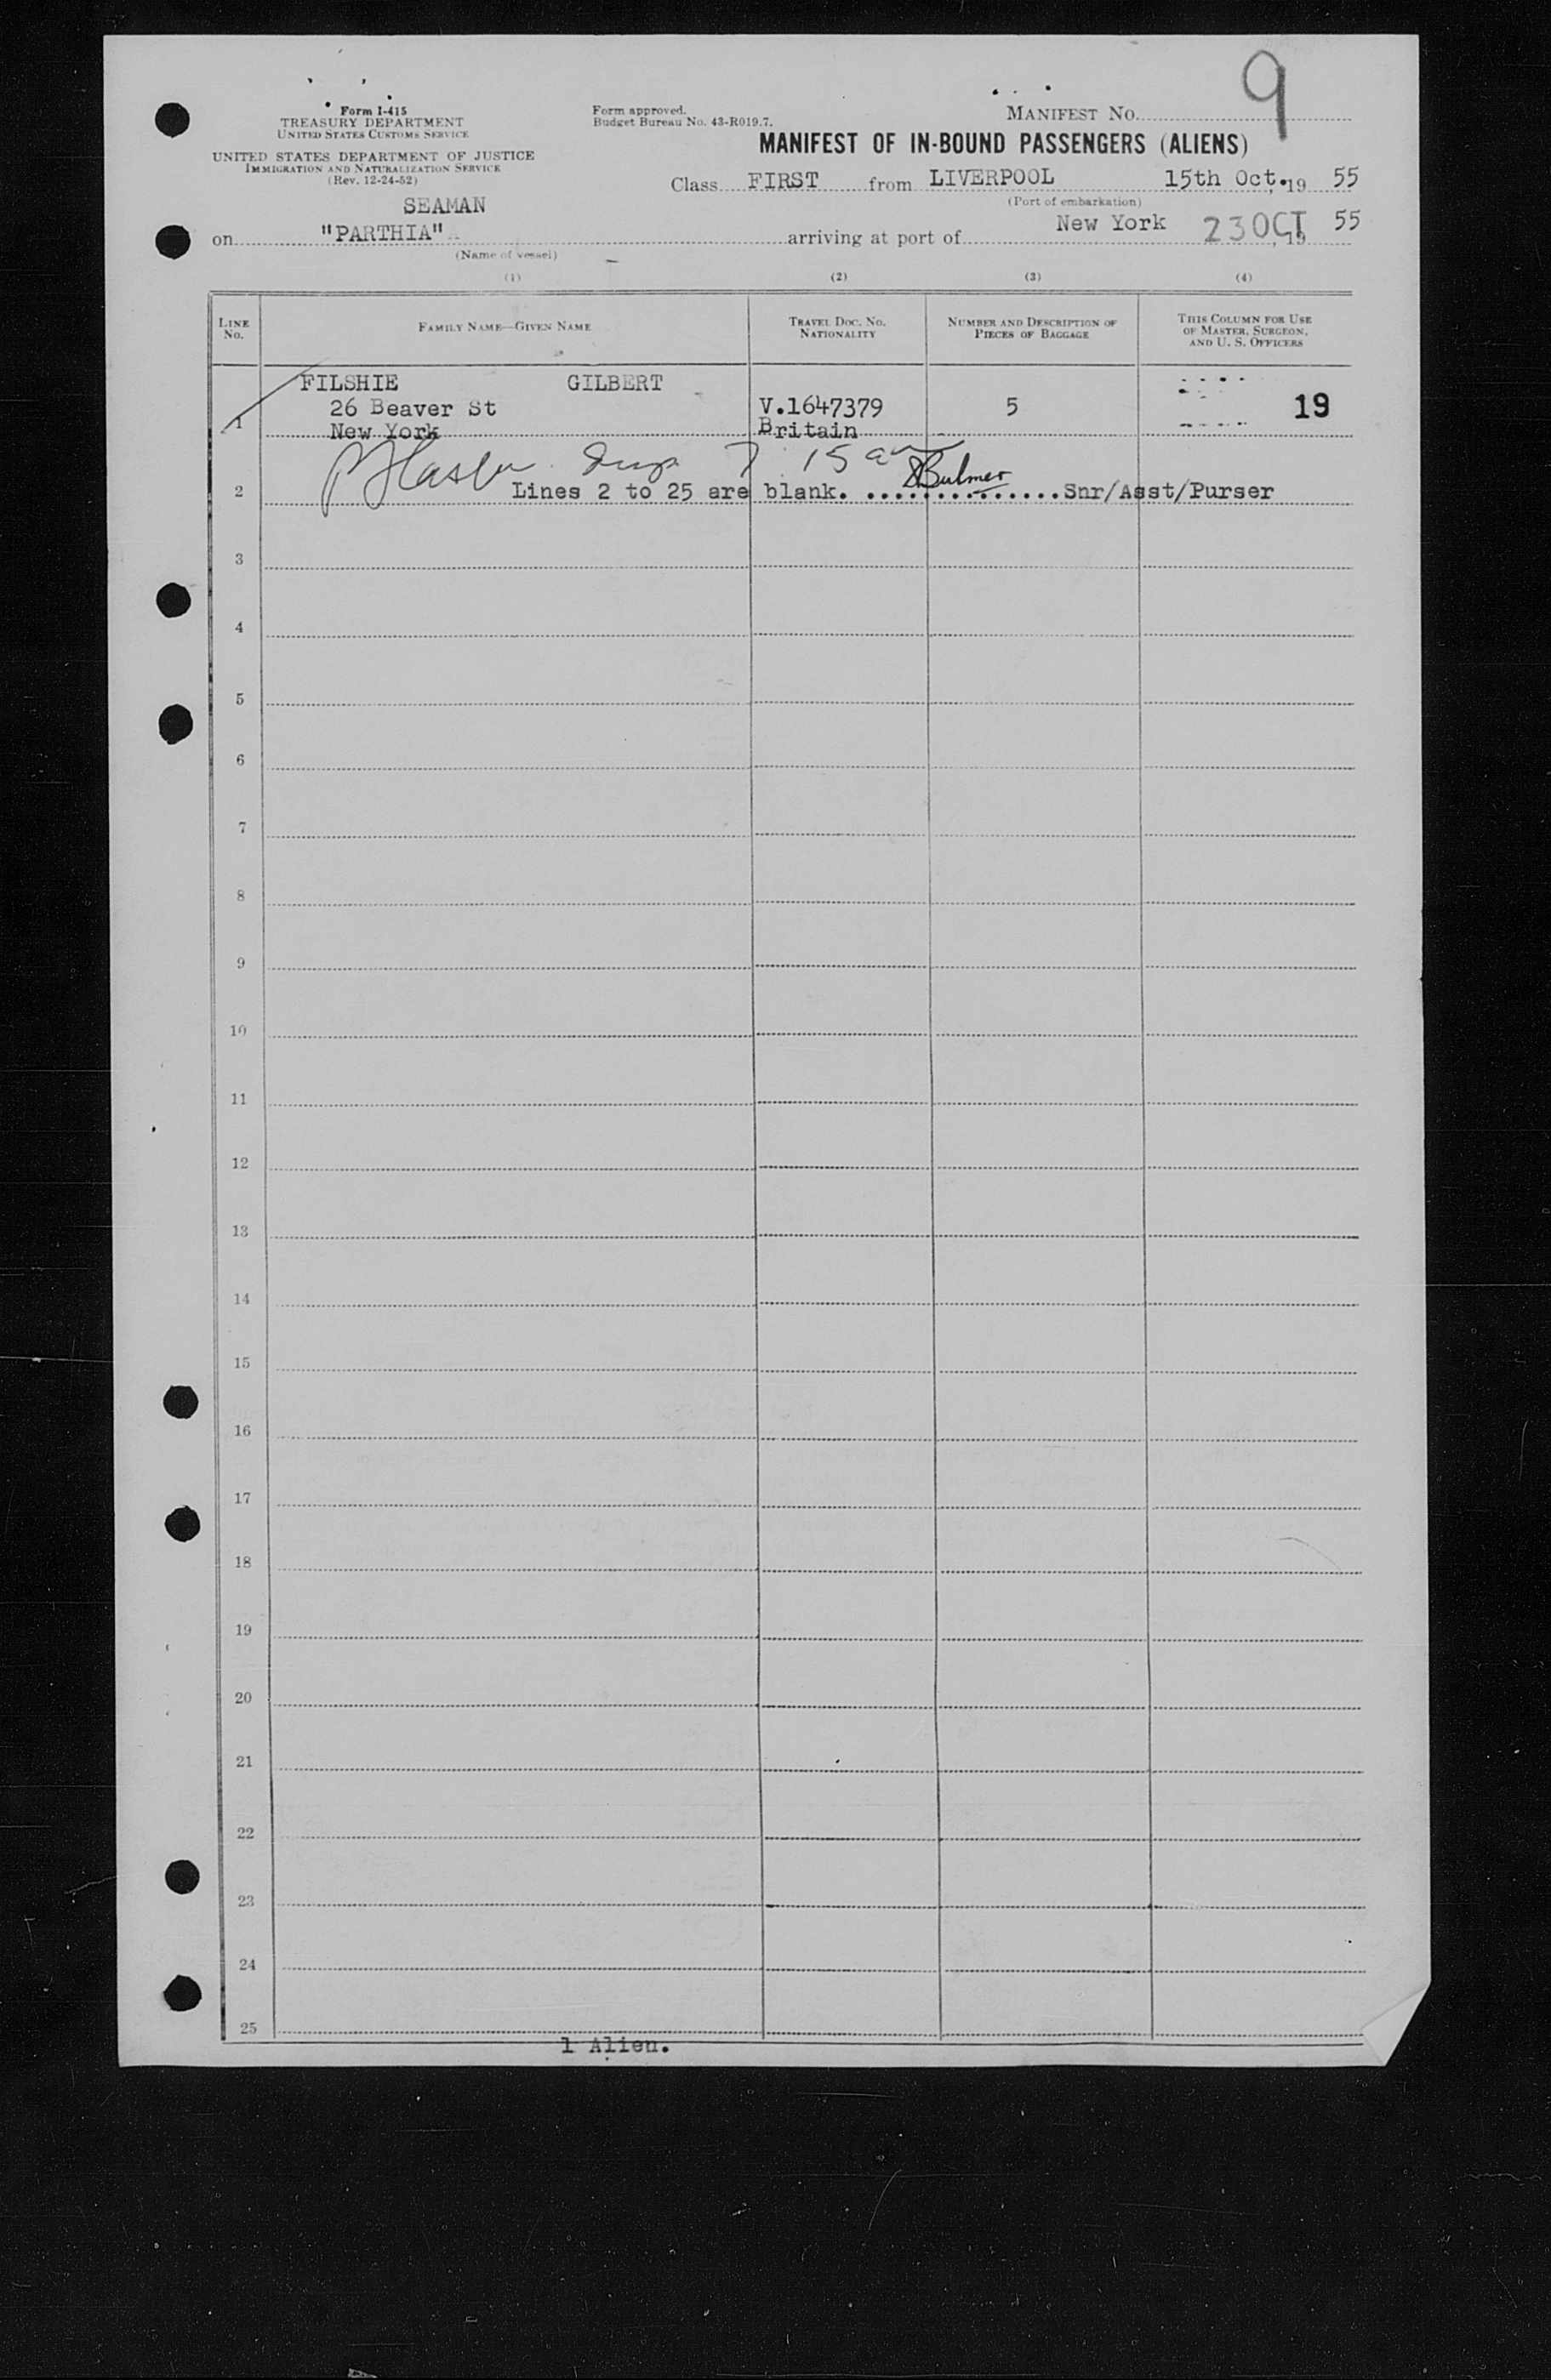 9
Form I-415
TREASURY DEPARTMENT
UNITED STATES CUSTOMS SERVICE
UNITED STATES DEPARTMENT OF JUSTICE
IMMIGRATION AND NATURALIZATION SERVICE
(Rev. 12-24-52)
Form approved.
Budget Bureau No. 43-R019.7.
MANIFEST NO.
MANIFEST OF IN-BOUND PASSENGERS (ALIENS)
Class FIRST from LIVERPOOL 15th Oct. 19 55
(Port of embarkation)
SEAMAN
on "PARTHIA" arriving at port of New York 23 OCT 19 55
(Name of vessel)
(1) (2) (3) (4)
LINE NO.
FAMILY NAME—GIVEN NAME
TRAVEL DOC. NO.
NATIONALITY
NUMBER AND DESCRIPTION OF
PIECES OF BAGGAGE
THIS COLUMN FOR USE
OF MASTER, SURGEON,
AND U. S. OFFICERS
FILSHIE GILBERT
26 Beaver St V.1647379 5 19
1 New York Britain
7 15 am
DBulmer
2 Lines 2 to 25 are blank. ..............Snr/Asst/Purser
3
4
5
6
7
8
9
10
11
12
13
14
15
16
17
18
19
20
21
22
23
24
25
1 Alien.